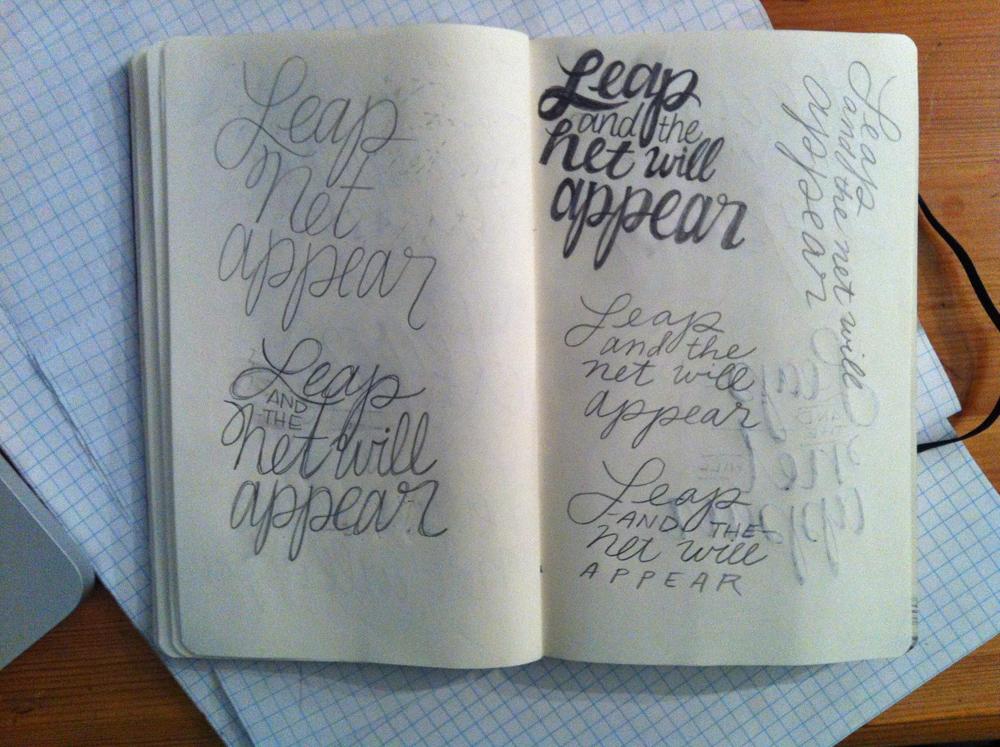 Leap
net
appear
Leap
AND
THE
net will
appear
Leap
and the
net will
appear
Leap
and the
net will
appear
Leap
AND THE
net will
APPEAR
Leap
and the net will
appear